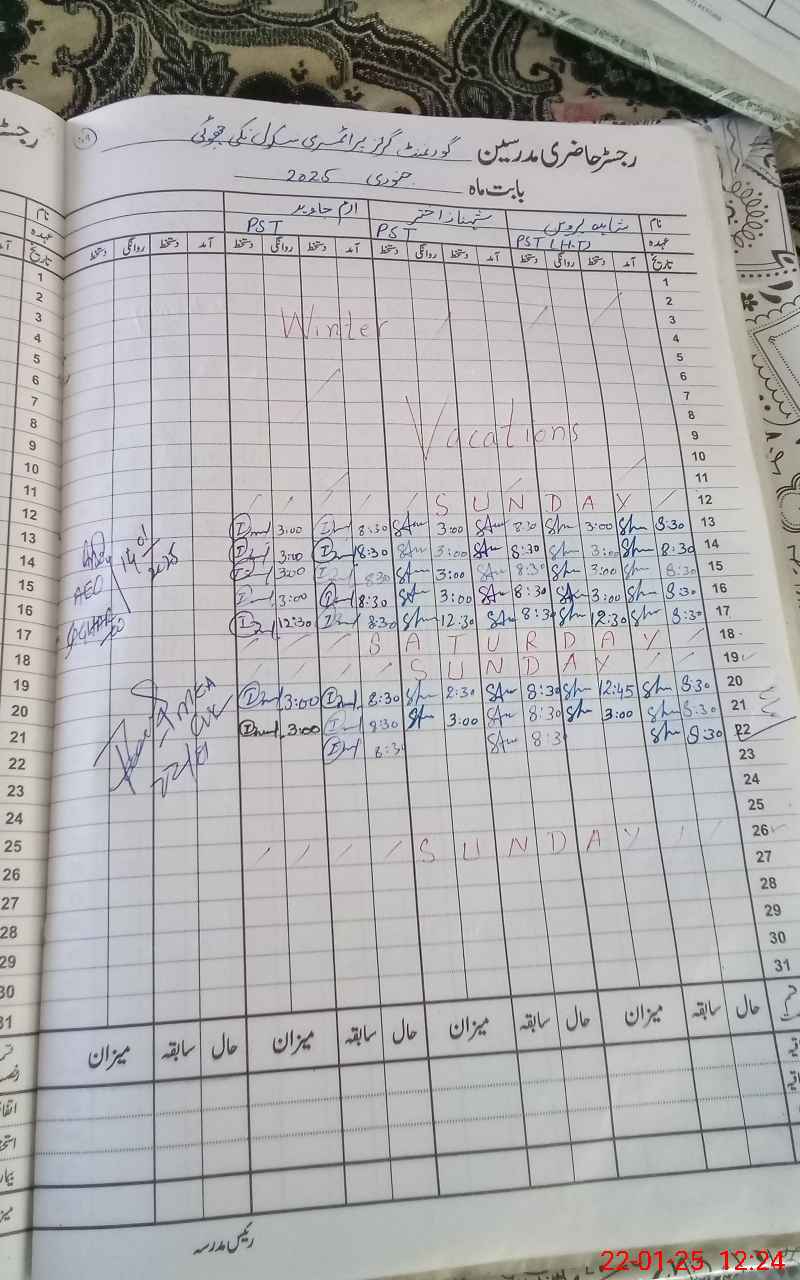 رجسٹر حاضری مدرسین گورنمنٹ گرلز پرائمری سکول نکی چھوٹی
بابت ماہ جنوری 2025
نام شاہدہ پروین شہناز اختر ارم جاوید
عہدہ PST (H.T) PST PST
تاریخ آمد دستخط روانگی دستخط آمد دستخط روانگی دستخط آمد دستخط روانگی دستخط آمد دستخط روانگی دستخط
1
2
3 Winter
4
5
6
7
8
9 Vacations
10
11
12 SUNDAY
13 8:30 3:00 8:30 3:00 8:30 3:00
14 8:30 3:00 8:30 3:00 8:30 3:00
15 8:30 3:00 8:30 3:00 8:30 3:00
16 8:30 3:00 8:30 3:00 8:30 3:00
17 8:30 12:30 8:30 12:30 8:30 12:30
18 SATURDAY
19 SUNDAY
20 8:30 12:45 8:30 2:30 8:30 3:00
21 8:30 3:00 8:30 3:00 8:30 3:00
22 8:30 8:30 8:30
23
24
25
26 SUNDAY
27
28
29
30
31
14/01/2025
AEO
MEA
22/01
حال سابقہ میزان حال سابقہ میزان حال سابقہ میزان حال سابقہ میزان
رئیس مدرسہ
22-01-25 12:24